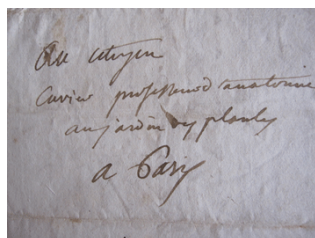 Au citoyen
Cuvier professeur d'anatomie
au jardin des plantes
a Paris